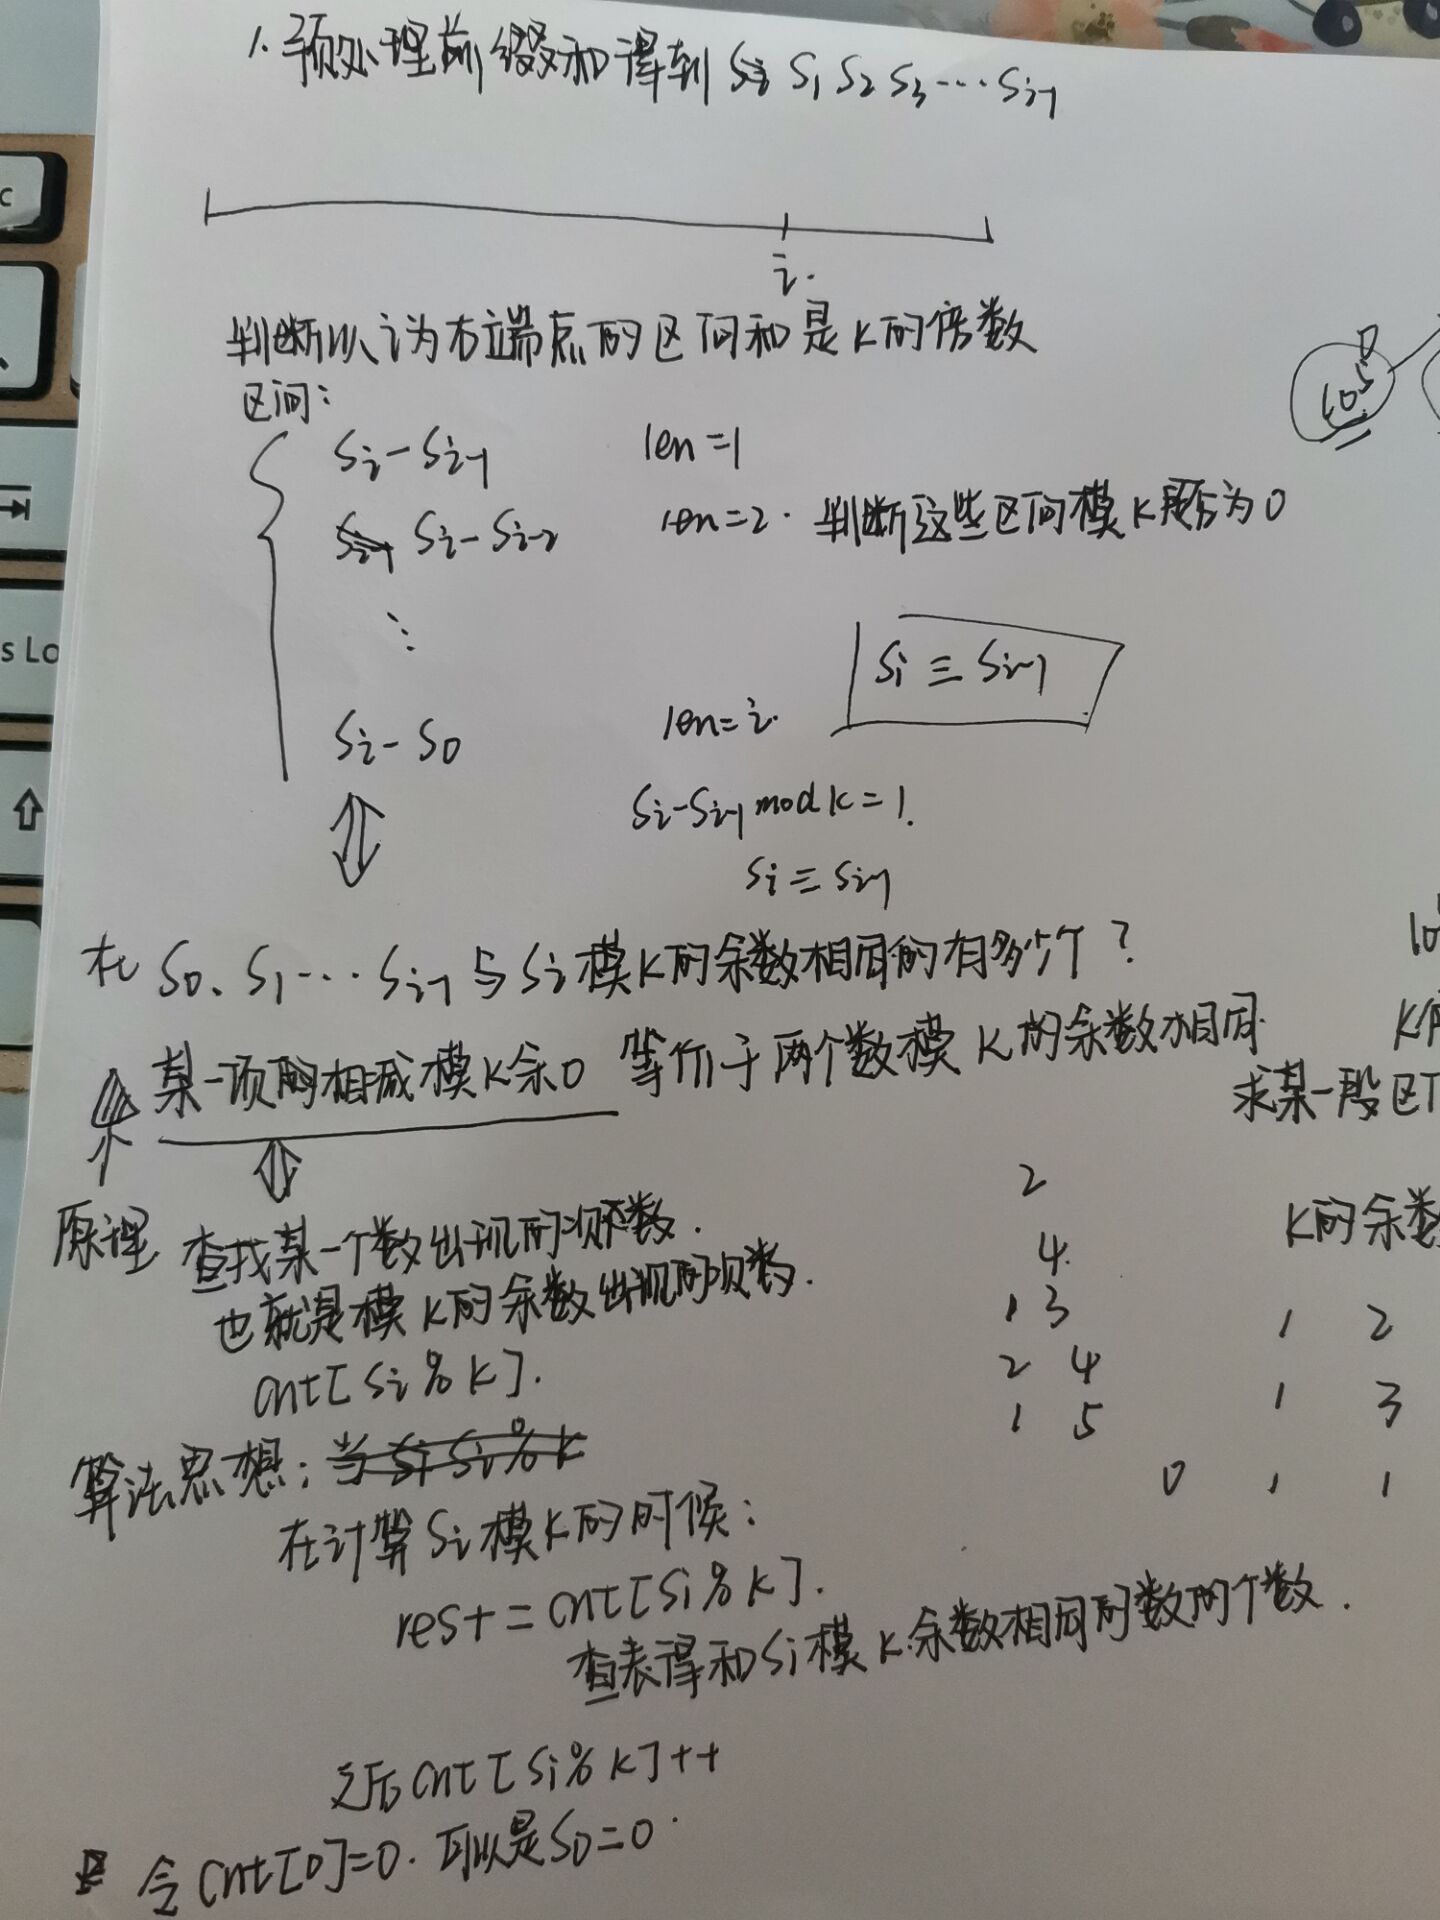 1. 预处理前缀和得到 Si S1 S2 S3 … Si-1
i.
判断以 i 为右端点的区间和是 K 的倍数
区间：
10^5
Si - Si-1 len=1
Si - Si-2 len=2. 判断这些区间模 K 是否为 0
⋮
Si ≡ Si-1
Si - S0 len=i.
Si - Si-1 mod K = 1.
Si ≡ Si-1
在 S0、S1 … Si-1 与 Si 模 K 的余数相同的有多少个？
某一项的相减模 K 余 0 等价于两个数模 K 的余数相同.
求某一段区
原理 查找某一个数出现的次数.
也就是模 K 的余数出现的次数.
cnt[Si % K].
2
4.
1 3
2 4
1 5
K的余数
1 2
1 3
0 1 1
算法思想：
在计算 Si 模 K 的时候：
res += cnt[Si % K].
查表得和 Si 模 K 余数相同的数的个数.
之后 cnt[Si % K]++
令 cnt[0]=0. 可以是 S0=0.